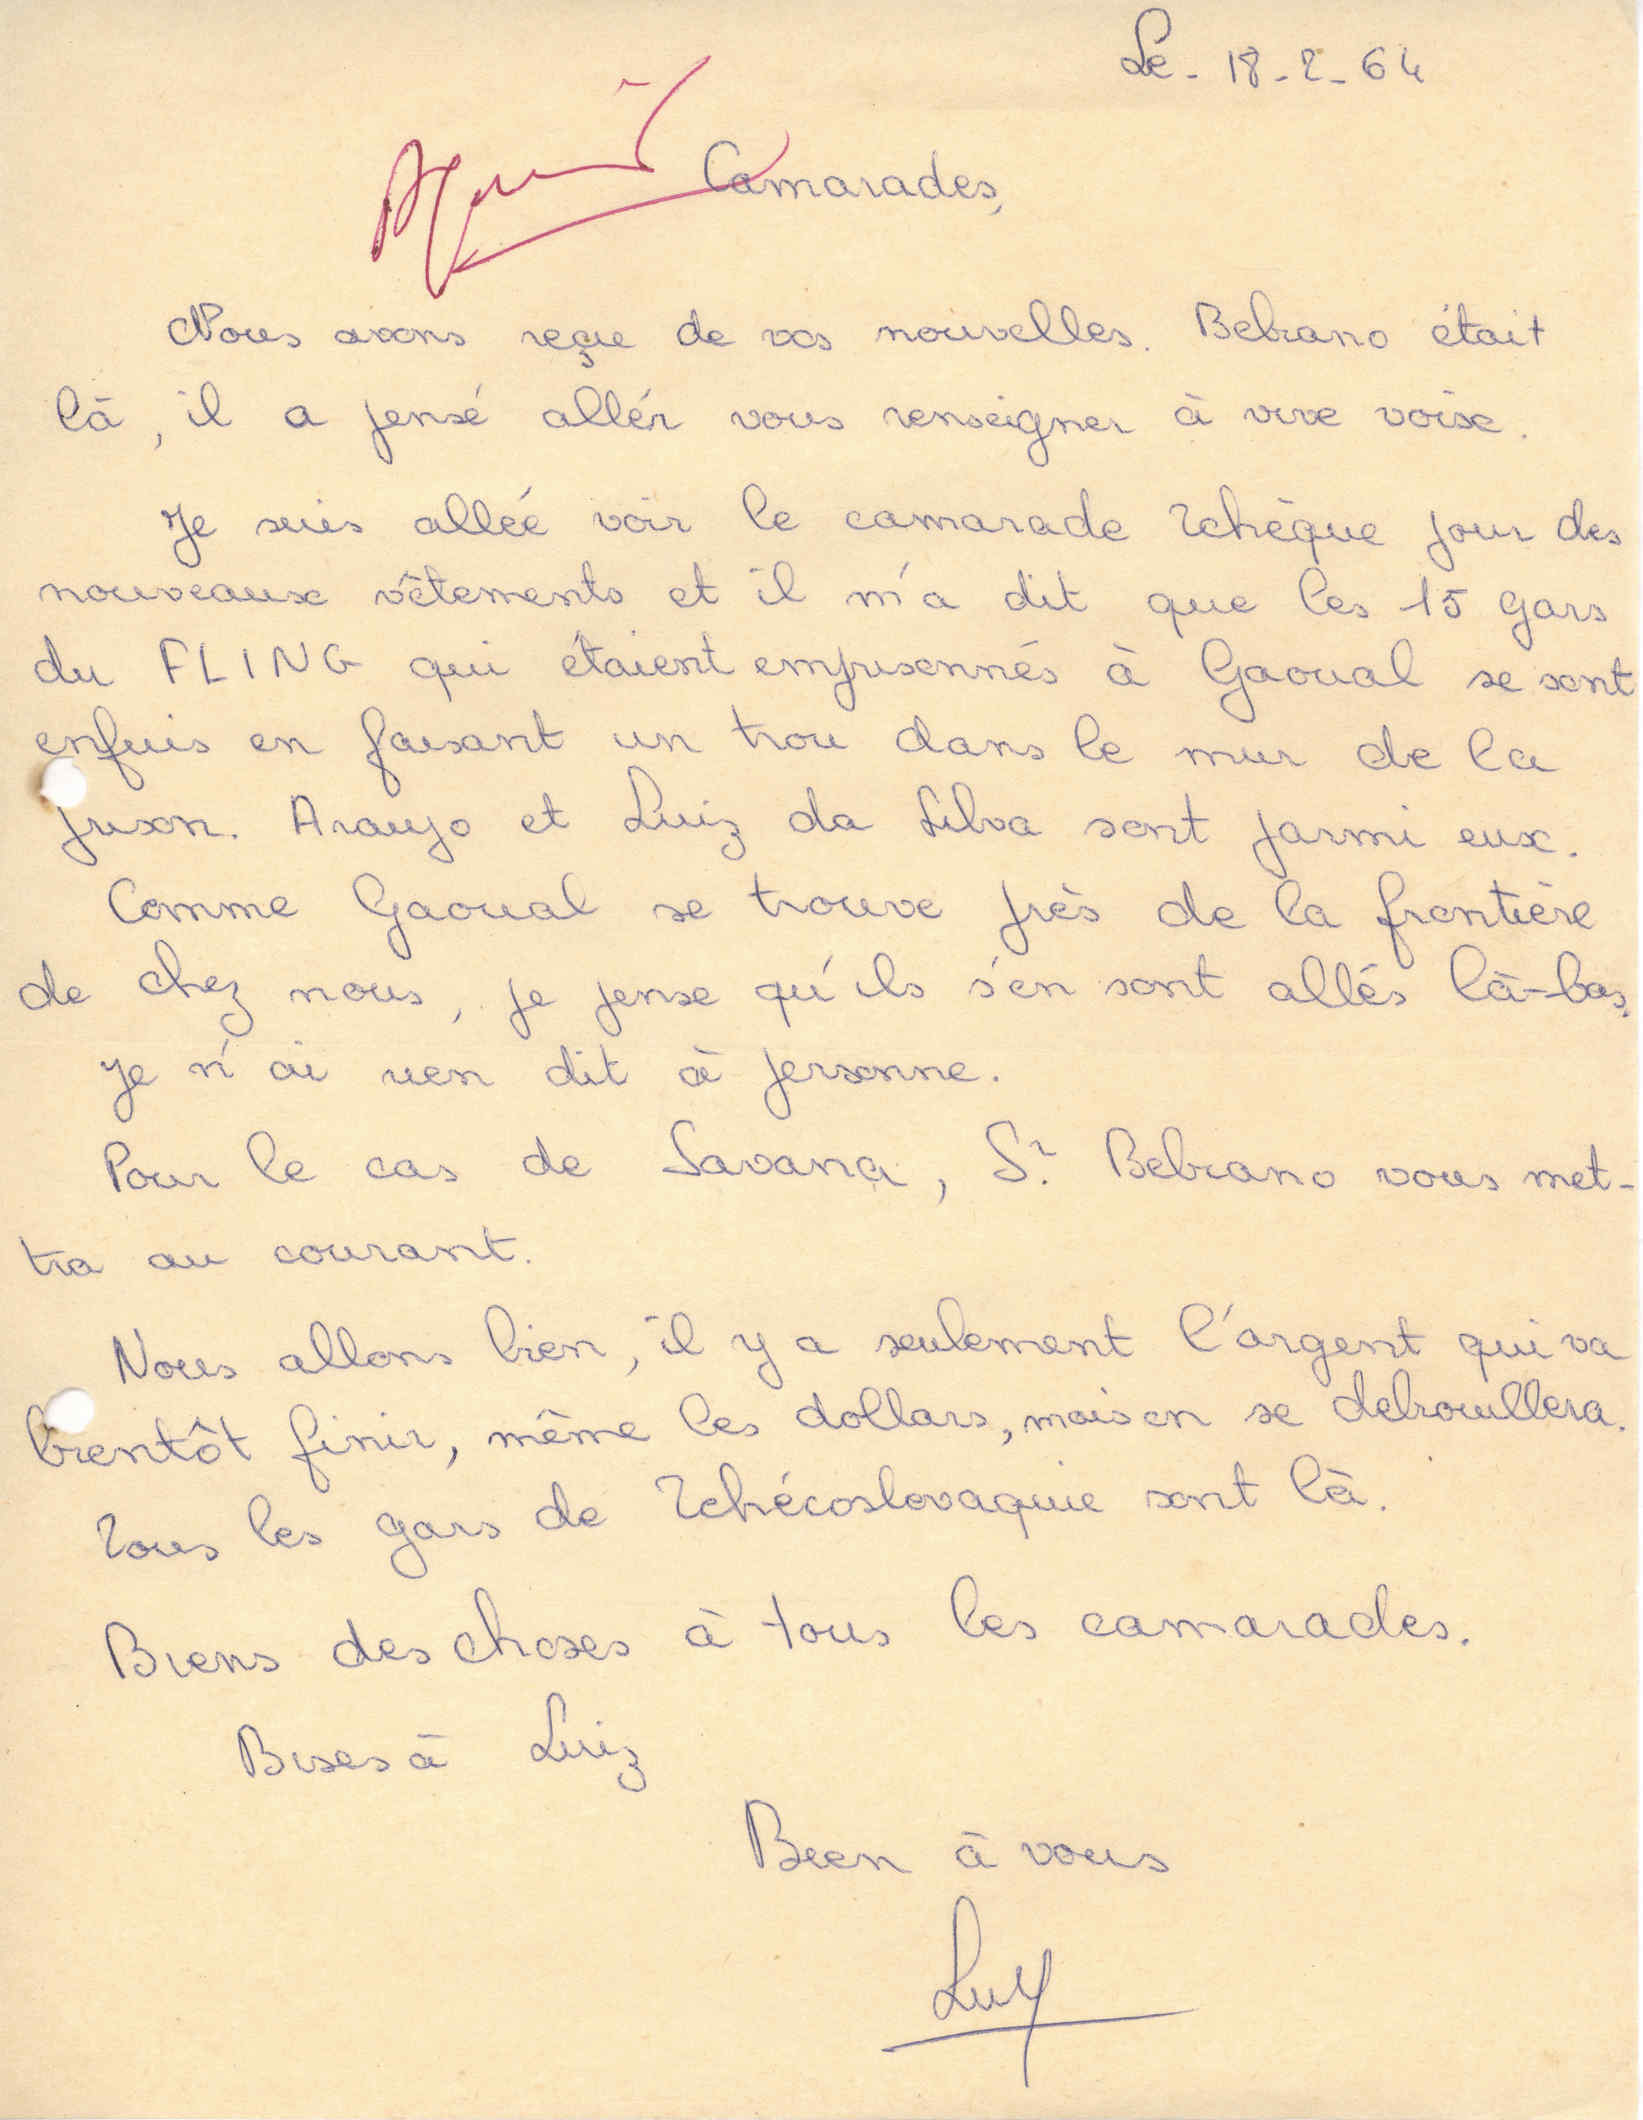 Le - 18-2-64
Camarades,
Nous avons reçu de vos nouvelles. Bebiano était
là, il a pensé allér vous renseigner à vive voix.
Je suis alleé voir le camarade Tchèque pour des
nouveaux vêtements et il m'a dit que les 15 gars
du FLING qui étaient emprisonnés à Gaoual se sont
enfuis en faisant un trou dans le mur de la
prison. Araujo et Luiz da Silva sont parmi eux.
Comme Gaoual se trouve près de la frontière
de chez nous, je pense qu'ils s'en sont allés là-bas.
Je n'ai rien dit à personne.
Pour le cas de Savana, Sr. Bebiano vous met-
tra au courant.
Nous allons bien, il y a seulement l'argent qui va
bientôt finir, même les dollars, mais on se debrouillera.
Tous les gars de Tchécoslovaquie sont là.
Biens des choses à tous les camarades.
Bises à Luiz
Bien à vous
Luy